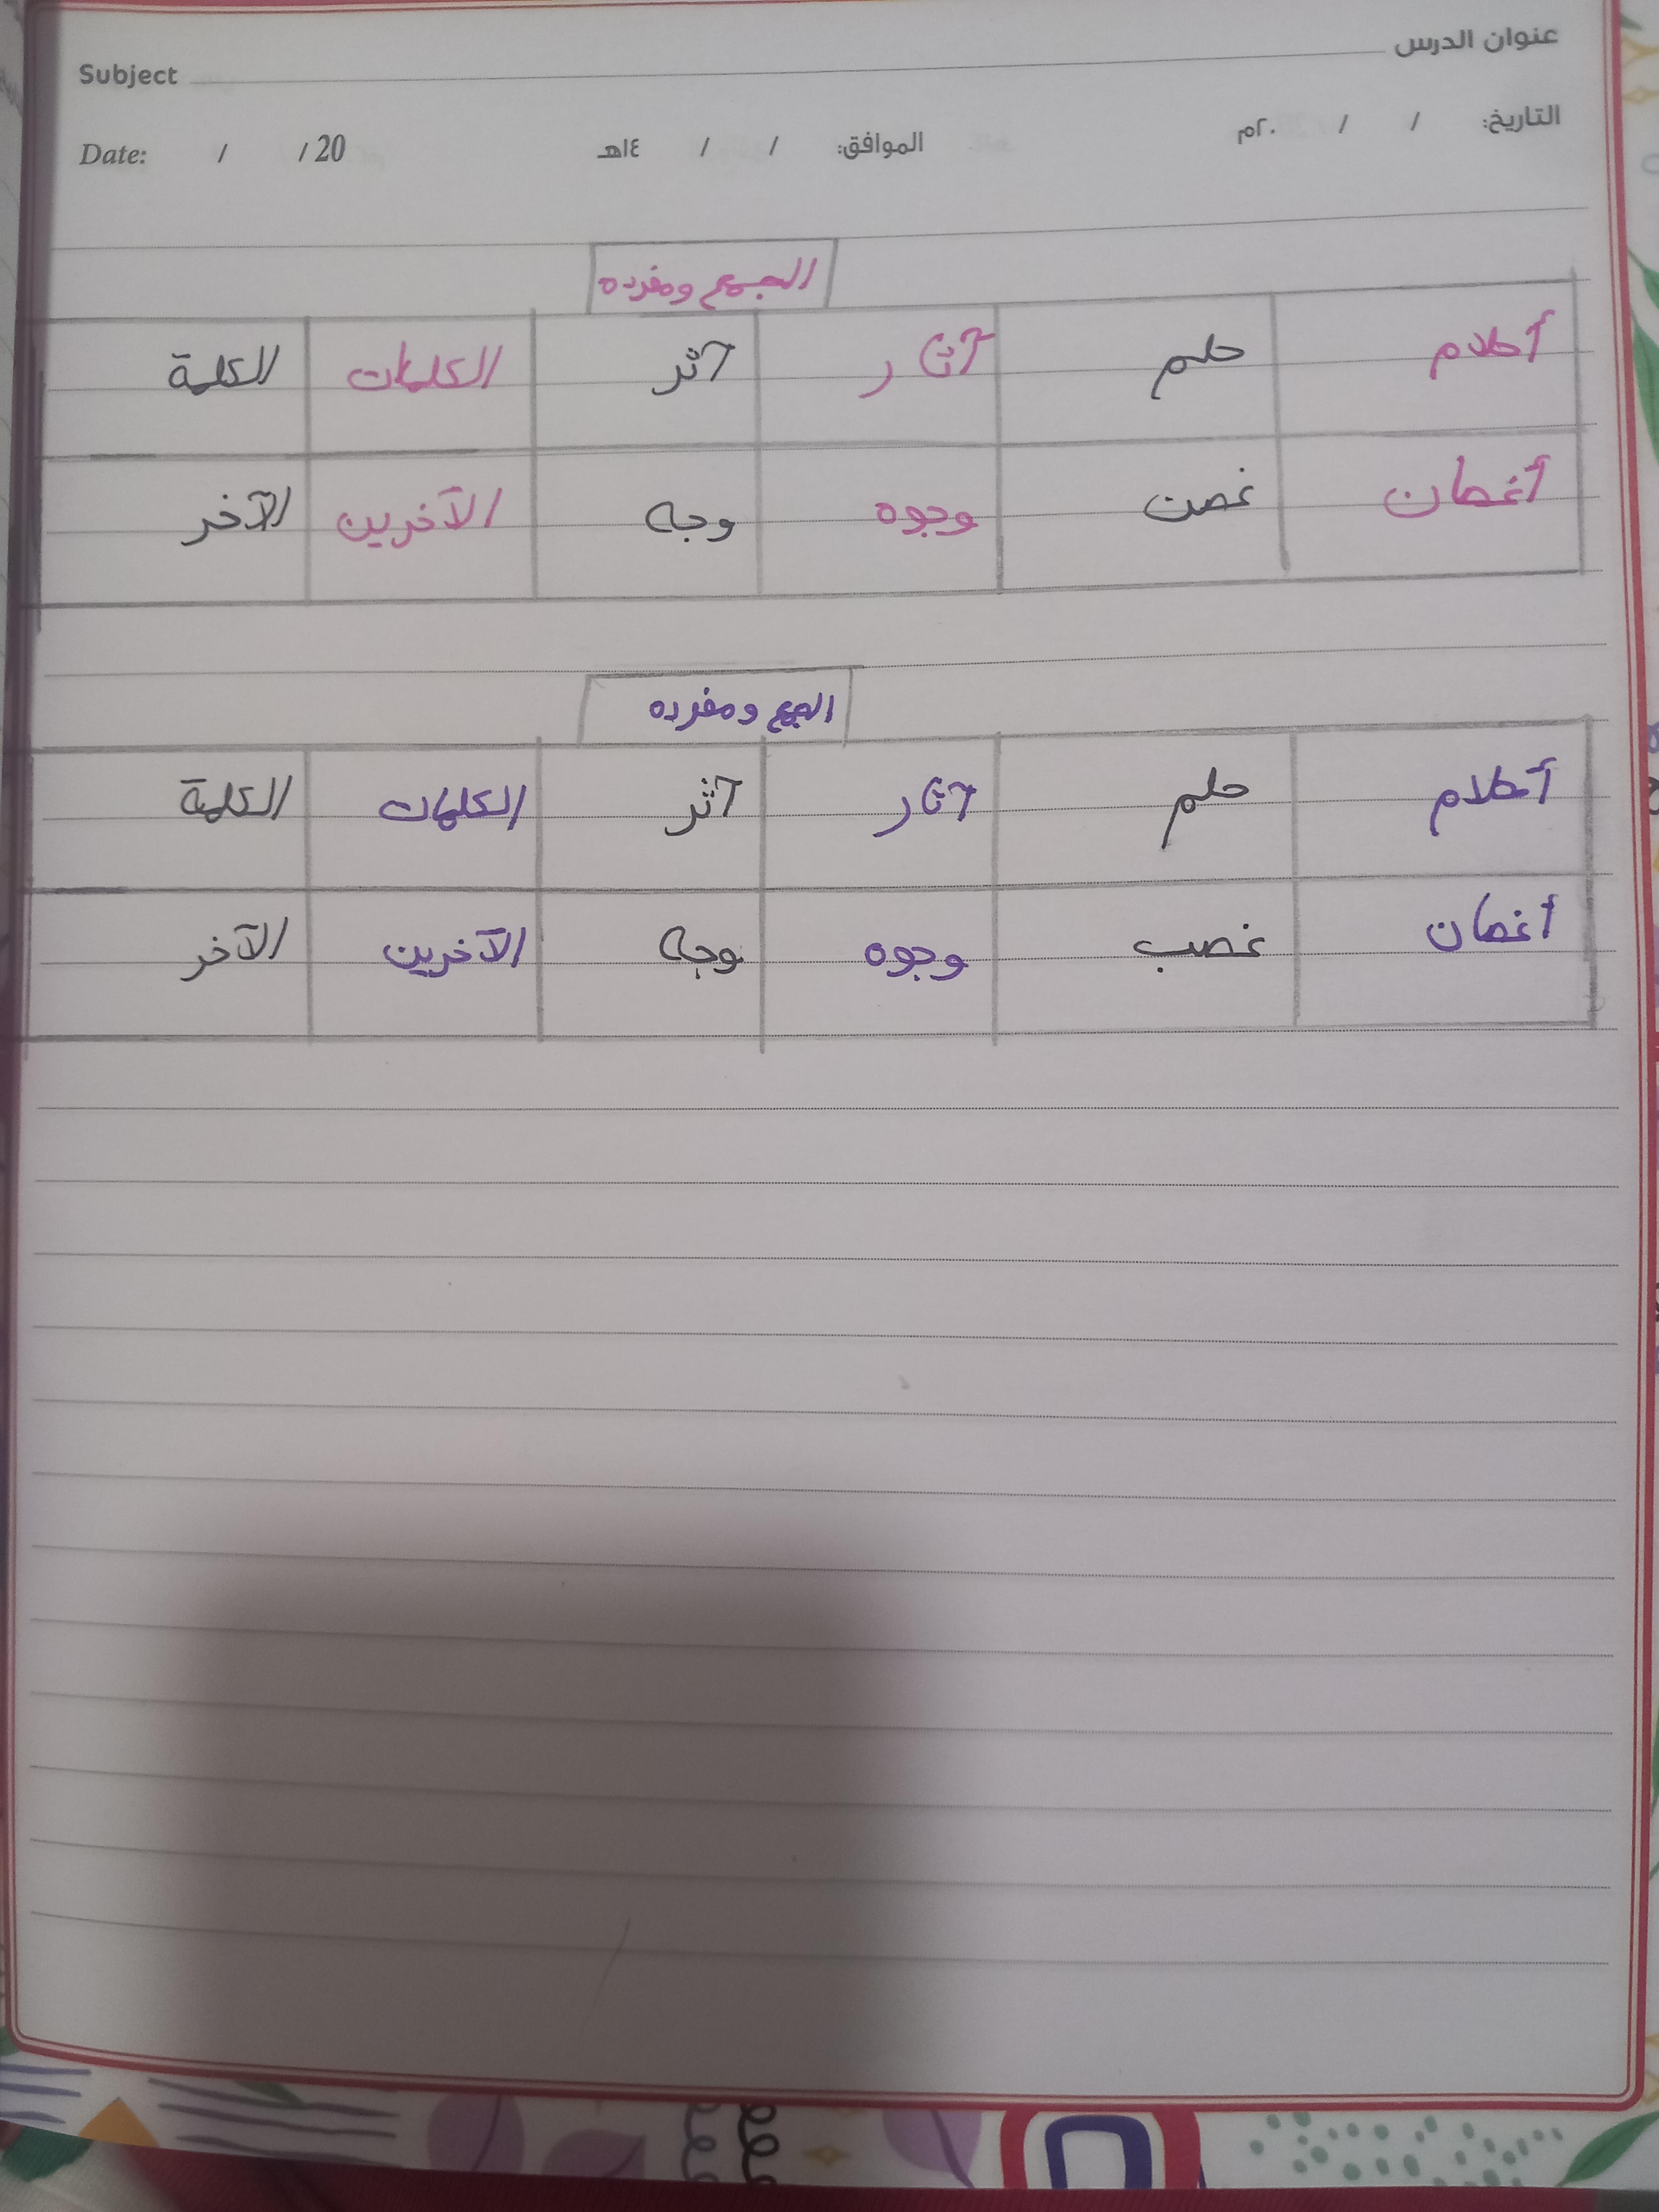 عنوان الدرس Subject
التاريخ: / / ٢٠م الموافق: / / ١٤هـ Date: / / 20
الجمع ومفرده
أحلام حلم آثار أثر الكلمات الكلمة
أغصان غصن وجوه وجه الآخرين الآخر
الجمع ومفرده
أحلام حلم آثار أثر الكلمات الكلمة
أغصان غصب وجوه وجه الآخرين الآخر